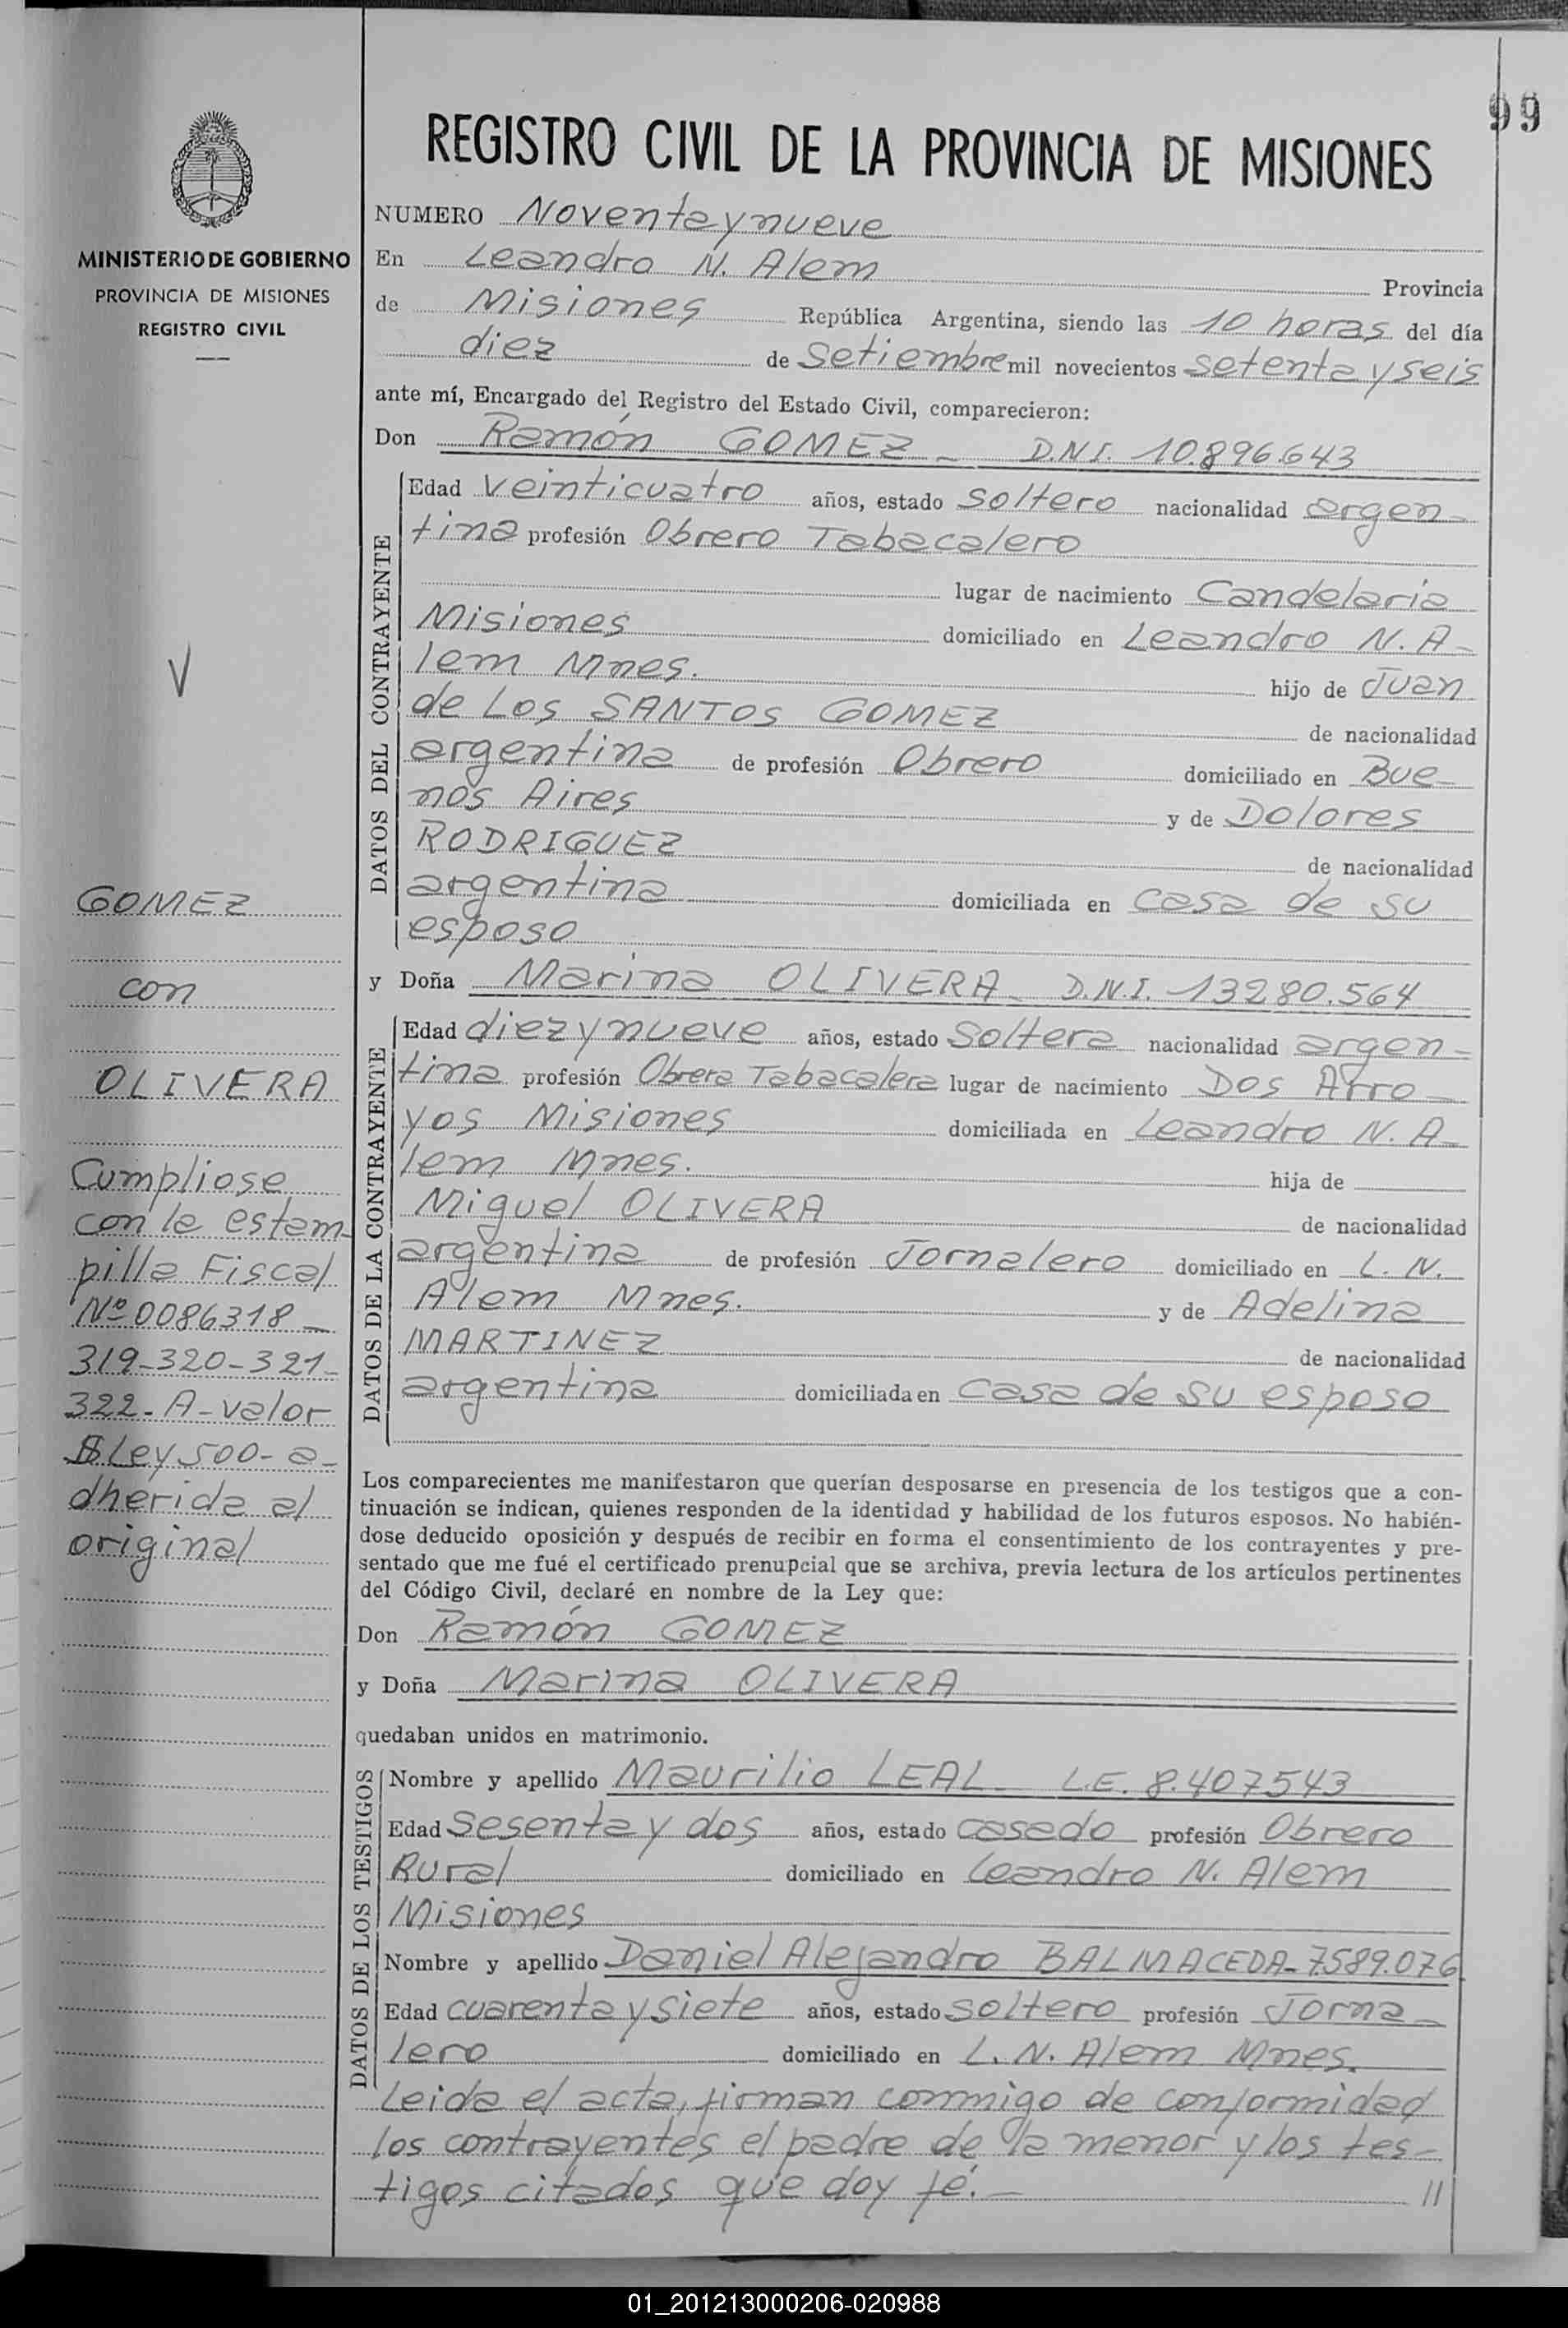 99
REGISTRO CIVIL DE LA PROVINCIA DE MISIONES
MINISTERIO DE GOBIERNO
PROVINCIA DE MISIONES
REGISTRO CIVIL
NUMERO Noventa y nueve
En Leandro N. Alem Provincia
de Misiones República Argentina, siendo las 10 horas del día
diez de Setiembre mil novecientos setenta y seis
ante mí, Encargado del Registro del Estado Civil, comparecieron:
Don Ramón GOMEZ - D.N.I. 10.896.643
DATOS DEL CONTRAYENTE
Edad veinticuatro años, estado soltero nacionalidad argen-
tina profesión Obrero Tabacalero
lugar de nacimiento Candelaria
Misiones domiciliado en Leandro N. A-
lem Mnes. hijo de Juan
de Los SANTOS GOMEZ de nacionalidad
argentina de profesión Obrero domiciliado en Bue-
nos Aires y de Dolores
RODRIGUEZ de nacionalidad
argentina domiciliada en casa de su
esposo
y Doña Marina OLIVERA - D.N.I. 13280.564
DATOS DE LA CONTRAYENTE
Edad diez y nueve años, estado soltera nacionalidad argen-
tina profesión Obrera Tabacalera lugar de nacimiento Dos Arro-
yos Misiones domiciliada en Leandro N. A-
lem Mnes. hija de
Miguel OLIVERA de nacionalidad
argentina de profesión Jornalero domiciliado en L. N.
Alem Mnes. y de Adelina
MARTINEZ de nacionalidad
argentina domiciliada en casa de su esposo
Los comparecientes me manifestaron que querían desposarse en presencia de los testigos que a con-
tinuación se indican, quienes responden de la identidad y habilidad de los futuros esposos. No habién-
dose deducido oposición y después de recibir en forma el consentimiento de los contrayentes y pre-
sentado que me fué el certificado prenupcial que se archiva, previa lectura de los artículos pertinentes
del Código Civil, declaré en nombre de la Ley que:
Don Ramón GOMEZ
y Doña Marina OLIVERA
quedaban unidos en matrimonio.
DATOS DE LOS TESTIGOS
Nombre y apellido Maurilio LEAL - L.E. 8.407543
Edad sesenta y dos años, estado casado profesión Obrero
Rural domiciliado en Leandro N. Alem
Misiones
Nombre y apellido Daniel Alejandro BALMACEDA - 7.589.076
Edad cuarenta y siete años, estado soltero profesión Jorna-
lero domiciliado en L. N. Alem Mnes.
Leida el acta, firman conmigo de conformidad
los contrayentes el padre de la menor y los tes-
tigos citados que doy fé. - //
GOMEZ
con
OLIVERA
Cumpliose
con la estam-
pilla Fiscal
Nº 0086318 -
319-320-321-
322-A-valor
$Ley 500- a-
dherida al
original
01_201213000206-020988